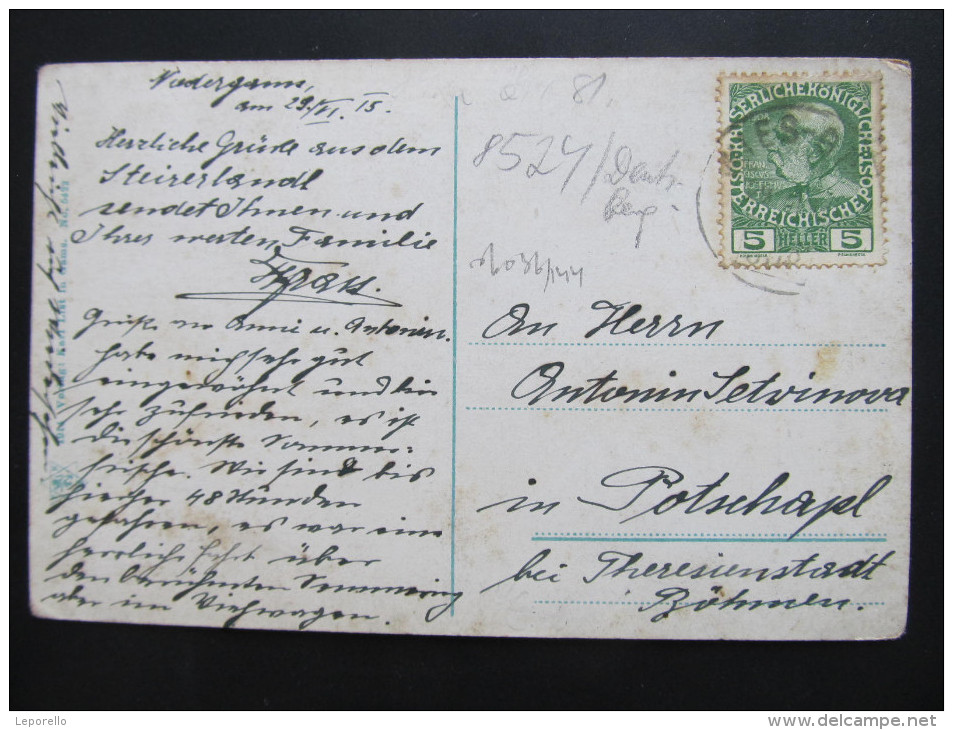 am 29./VI. 15.
Herzliche Grüße aus dem
Steirerland
sendet Ihnen und
Ihrer werten Familie
Franz.
Grüße an Anni u. Antonien.
habe mich sehr gut
eingewöhnt und bin
sehr zufrieden, es ist
die schönste Sommer-
frische. Wir sind bis
hierher 48 Stunden
gefahren, es war eine
herrliche Fahrt über
den berühmten Semmering
aber im Viehwagen.
81.
8524/Deutsch
Berg.
KAISERLICHE KÖNIGLICHE ÖSTERREICHISCHE POST
5 HELLER 5
An Herrn
Antonin Setvinova
in Potschapl
bei Theresienstadt
Böhmen.
Leporello
www.delcampe.net